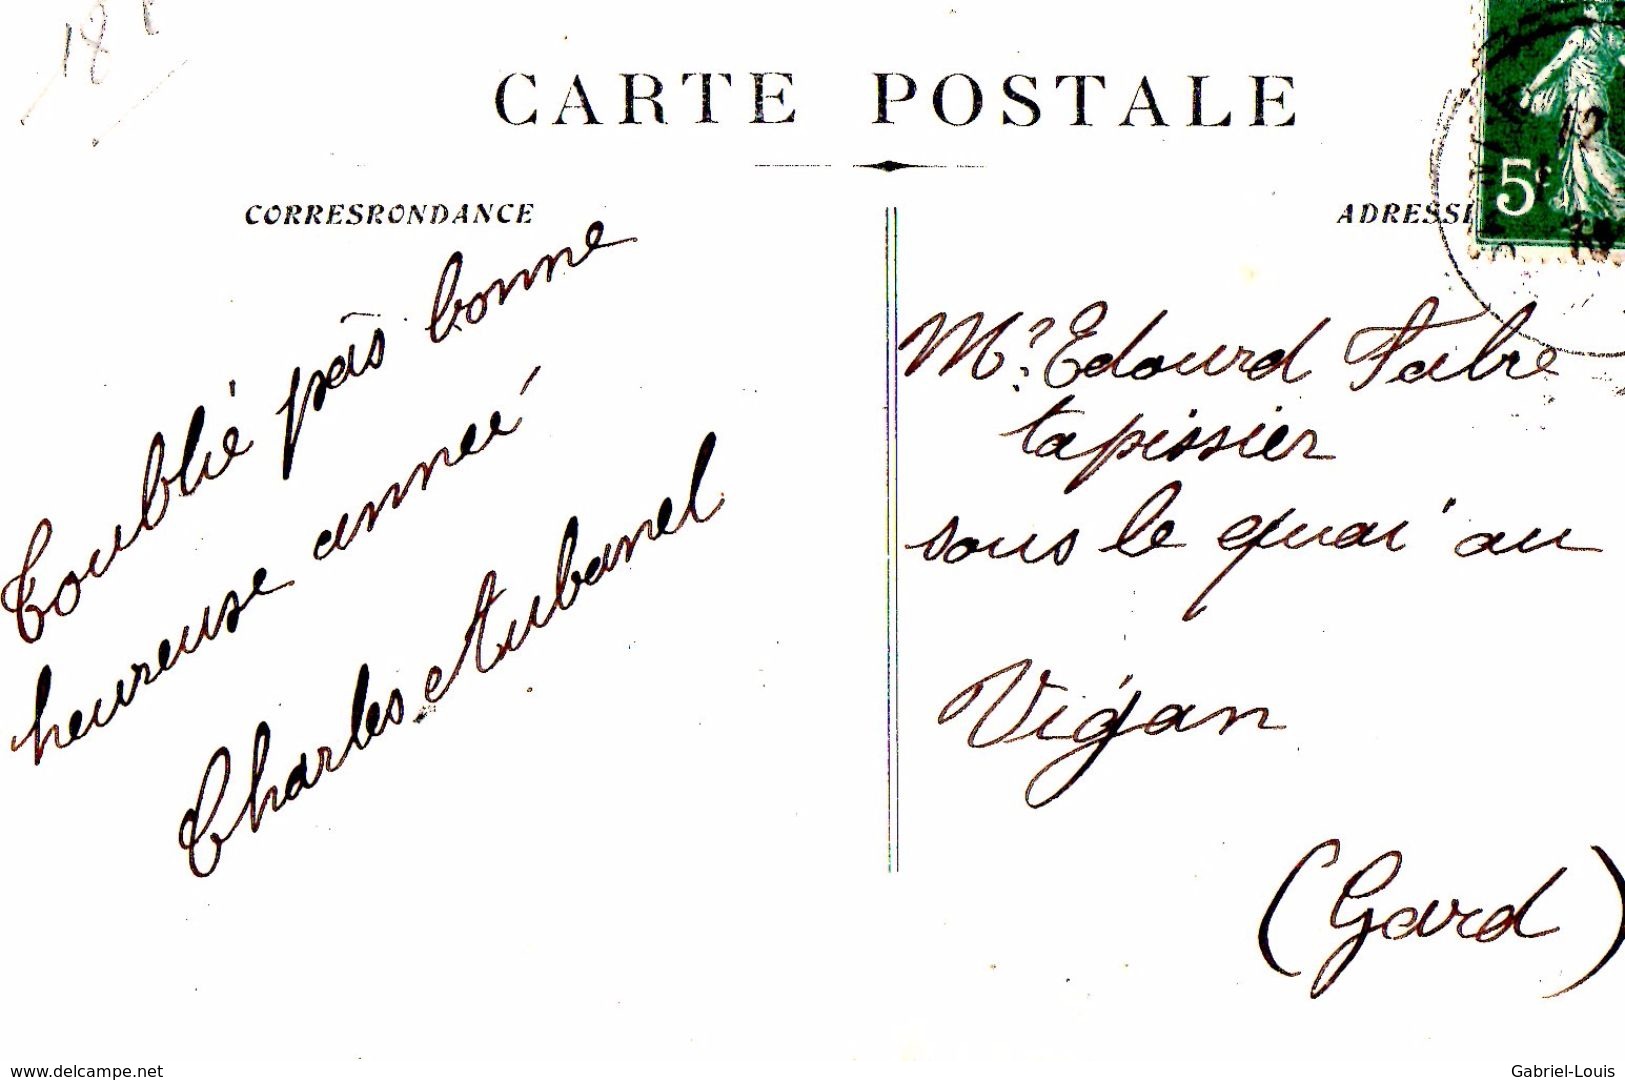 18
CARTE POSTALE
CORRESPONDANCE
ADRESSE
5c
T'oublié pas bonne
heureuse anneé
Charles Aubanel
Mr. Edouard Fabre
tapissier
sous le quai au
Vigan
(Gard)
www.delcampe.net
Gabriel-Louis